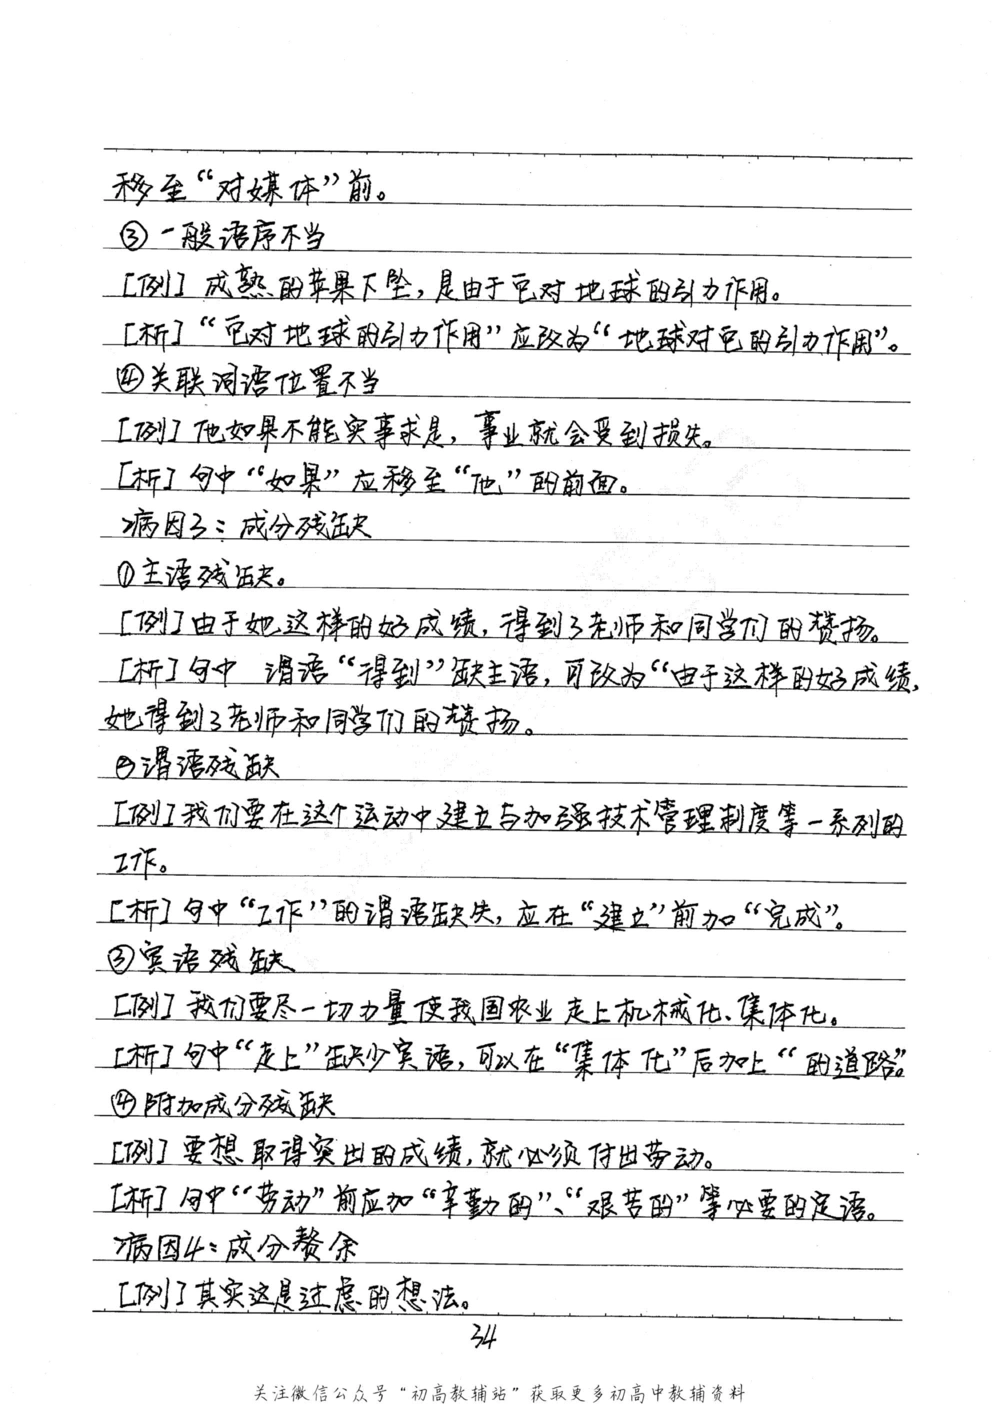 移至“对媒体”前。
③一般语序不当
[例]成熟的苹果下坠，是由于它对地球的引力作用。
[析]“它对地球的引力作用”应改为“地球对它的引力作用”。
④关联词语位置不当
[例]他如果不能实事求是，事业就会受到损失。
[析]句中“如果”应移至“他”的前面。
病因3：成分残缺
①主语残缺。
[例]由于她这样的好成绩，得到了老师和同学们的赞扬。
[析]句中 谓语“得到”缺主语，可改为“由于这样的好成绩，
她得到了老师和同学们的赞扬。
②谓语残缺
[例]我们要在这个运动中建立与加强技术管理制度等一系列的
工作。
[析]句中“工作”的谓语缺失，应在“建立”前加“完成”。
③宾语残缺
[例]我们要尽一切力量使我国农业走上机械化、集体化。
[析]句中“走上”缺少宾语，可以在“集体化”后加上“的道路”。
④附加成分残缺
[例]要想取得突出的成绩，就必须付出劳动。
[析]句中“劳动”前应加“辛勤的”、“艰苦的”等必要的定语。
病因4：成分赘余
[例]其实这是过虑的想法。
34
关注微信公众号“初高教辅站”获取更多初高中教辅资料